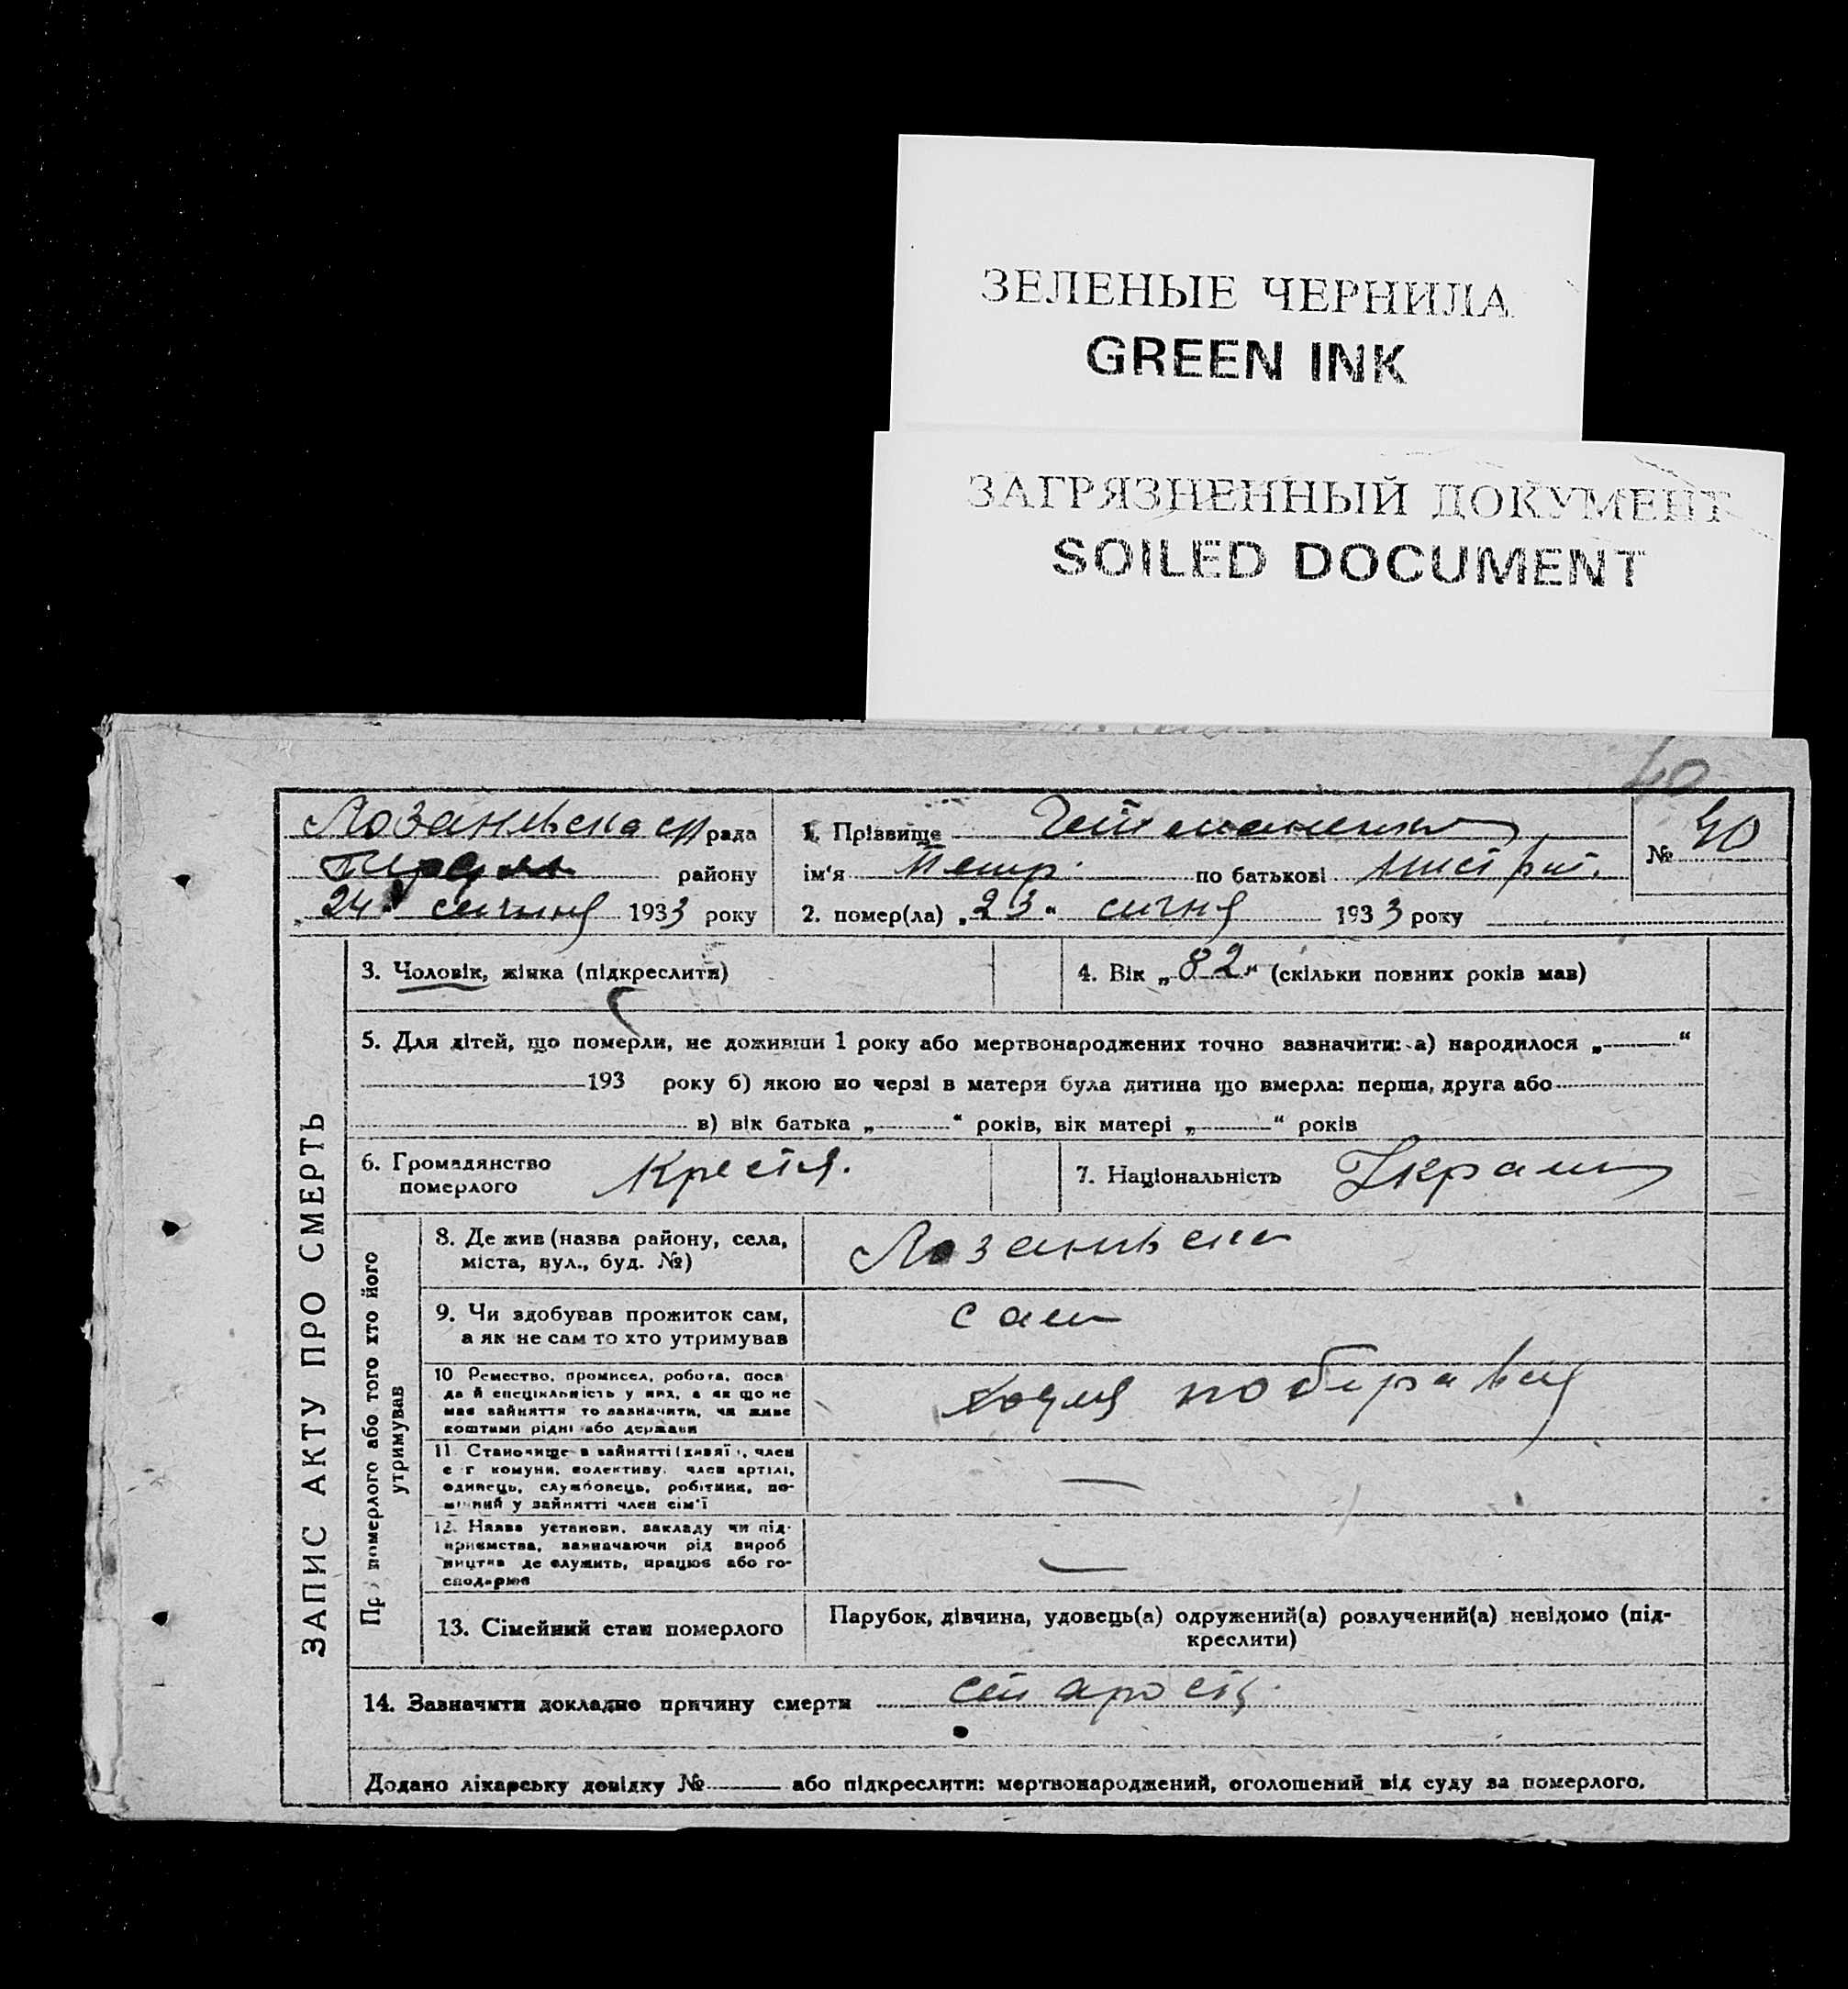 ЗЕЛЕНЫЕ ЧЕРНИЛА
GREEN INK
ЗАГРЯЗНЕННЫЙ ДОКУМЕНТ
SOILED DOCUMENT
40
рада
району
„24“ 1933 року
1. Прізвище Гетеманенко
ім'я Петр по батькові
2. помер(ла) „23“ січня 1933 року
№ 40
ЗАПИС АКТУ ПРО СМЕРТЬ
3. Чоловік, жінка (підкреслити)
4. Вік „82“ (скільки повних років мав)
5. Для дітей, що померли, не доживши 1 року або мертвонароджених точно зазначити: а) народилося „ “
193 року б) якою по черзі в матеря була дитина що вмерла: перша, друга або
в) вік батька „ “ років, вік матері „ “ років
6. Громадянство померлого Крестя.
7. Національність Украин
Про померлого або того хто його утримував
8. Де жив (назва району, села,
міста, вул., буд. №)
9. Чи здобував прожиток сам,
а як не сам то хто утримував
сам
10 Ремество, промисел, робота, поса
да й спеціяльність у них, а як що не
мав зайняття то зазначити, чи живе
коштами рідні або держави
побиравсия
11. Становище в зайнятті (хазяї , член
с г комуни, колективу, член артілі,
одинець, службовець, робітник, по-
мічний у зайнятті член сім'ї
12. Назва установи, закладу чи під-
приємства, зазначаючи рід вироб
ництва де служить, працює або го-
сподарює
13. Сімейний стан померлого
Парубок, дівчина, удовець(а) одружений(а) розлучений(а) невідомо (під-
креслити)
14. Зазначити докладно причину смерти старость
Додано лікарську довідку № або підкреслити: мертвонароджений, оголошений від суду за померлого.